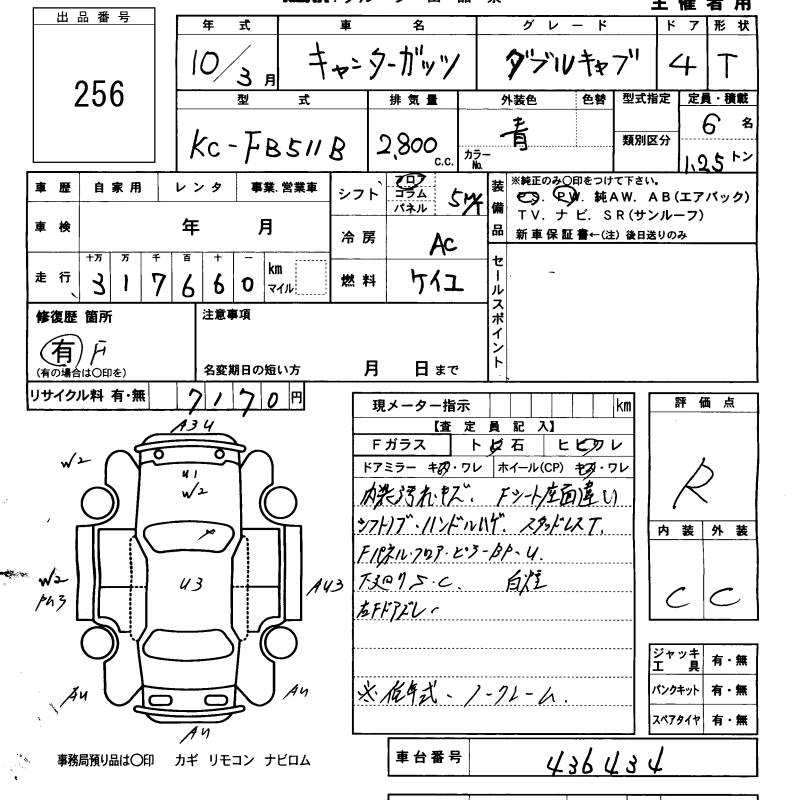 主催者用
出品番号
256
年式 車名 グレード ドア 形状
10/3月 キャンターガッツ ダブルキャブ 4 T
型式 排気量 外装色 色替 型式指定 定員・積載
KC-FB511B 2,800 c.c. 青 カラーNo. 類別区分 6名 1.25トン
車歴 自家用 レンタ 事業.営業車
シフト フロア コラム パネル 5M/T
装備品 ※純正のみ〇印をつけて下さい。
PS. PW. 純AW. AB(エアバック)
TV. ナビ. SR(サンルーフ)
新車保証書←(注)後日送りのみ
車検 年 月
冷房 AC
走行 十万 万 千 百 十 一 km マイル
3 1 7 6 6 0
燃料 ケイユ
セールスポイント
修復歴 箇所
有 F
(有の場合は〇印を)
注意事項
名変期日の短い方 月 日まで
リサイクル料 有・無 7170円
現メーター指示 km
【査定員記入】
Fガラス トビ石 ヒビワレ
ドアミラー キズ・ワレ ホイール(CP) キズ・ワレ
内装汚れ・キズ、Fシート座面違い
シフトノブ・ハンドルハゲ、スタッドレスT.
Fパネル・フロア・ピラーBP・U.
下廻りS・C.
左Fドアズレ
※低年式・ノークレーム.
評価点
R
内装 外装
C C
A3U
W2
U1
W2
U3
W2
AU3
AU
AU
AU
ジャッキ工具 有・無
パンクキット 有・無
スペアタイヤ 有・無
事務局預り品は〇印 カギ リモコン ナビロム
車台番号 436434